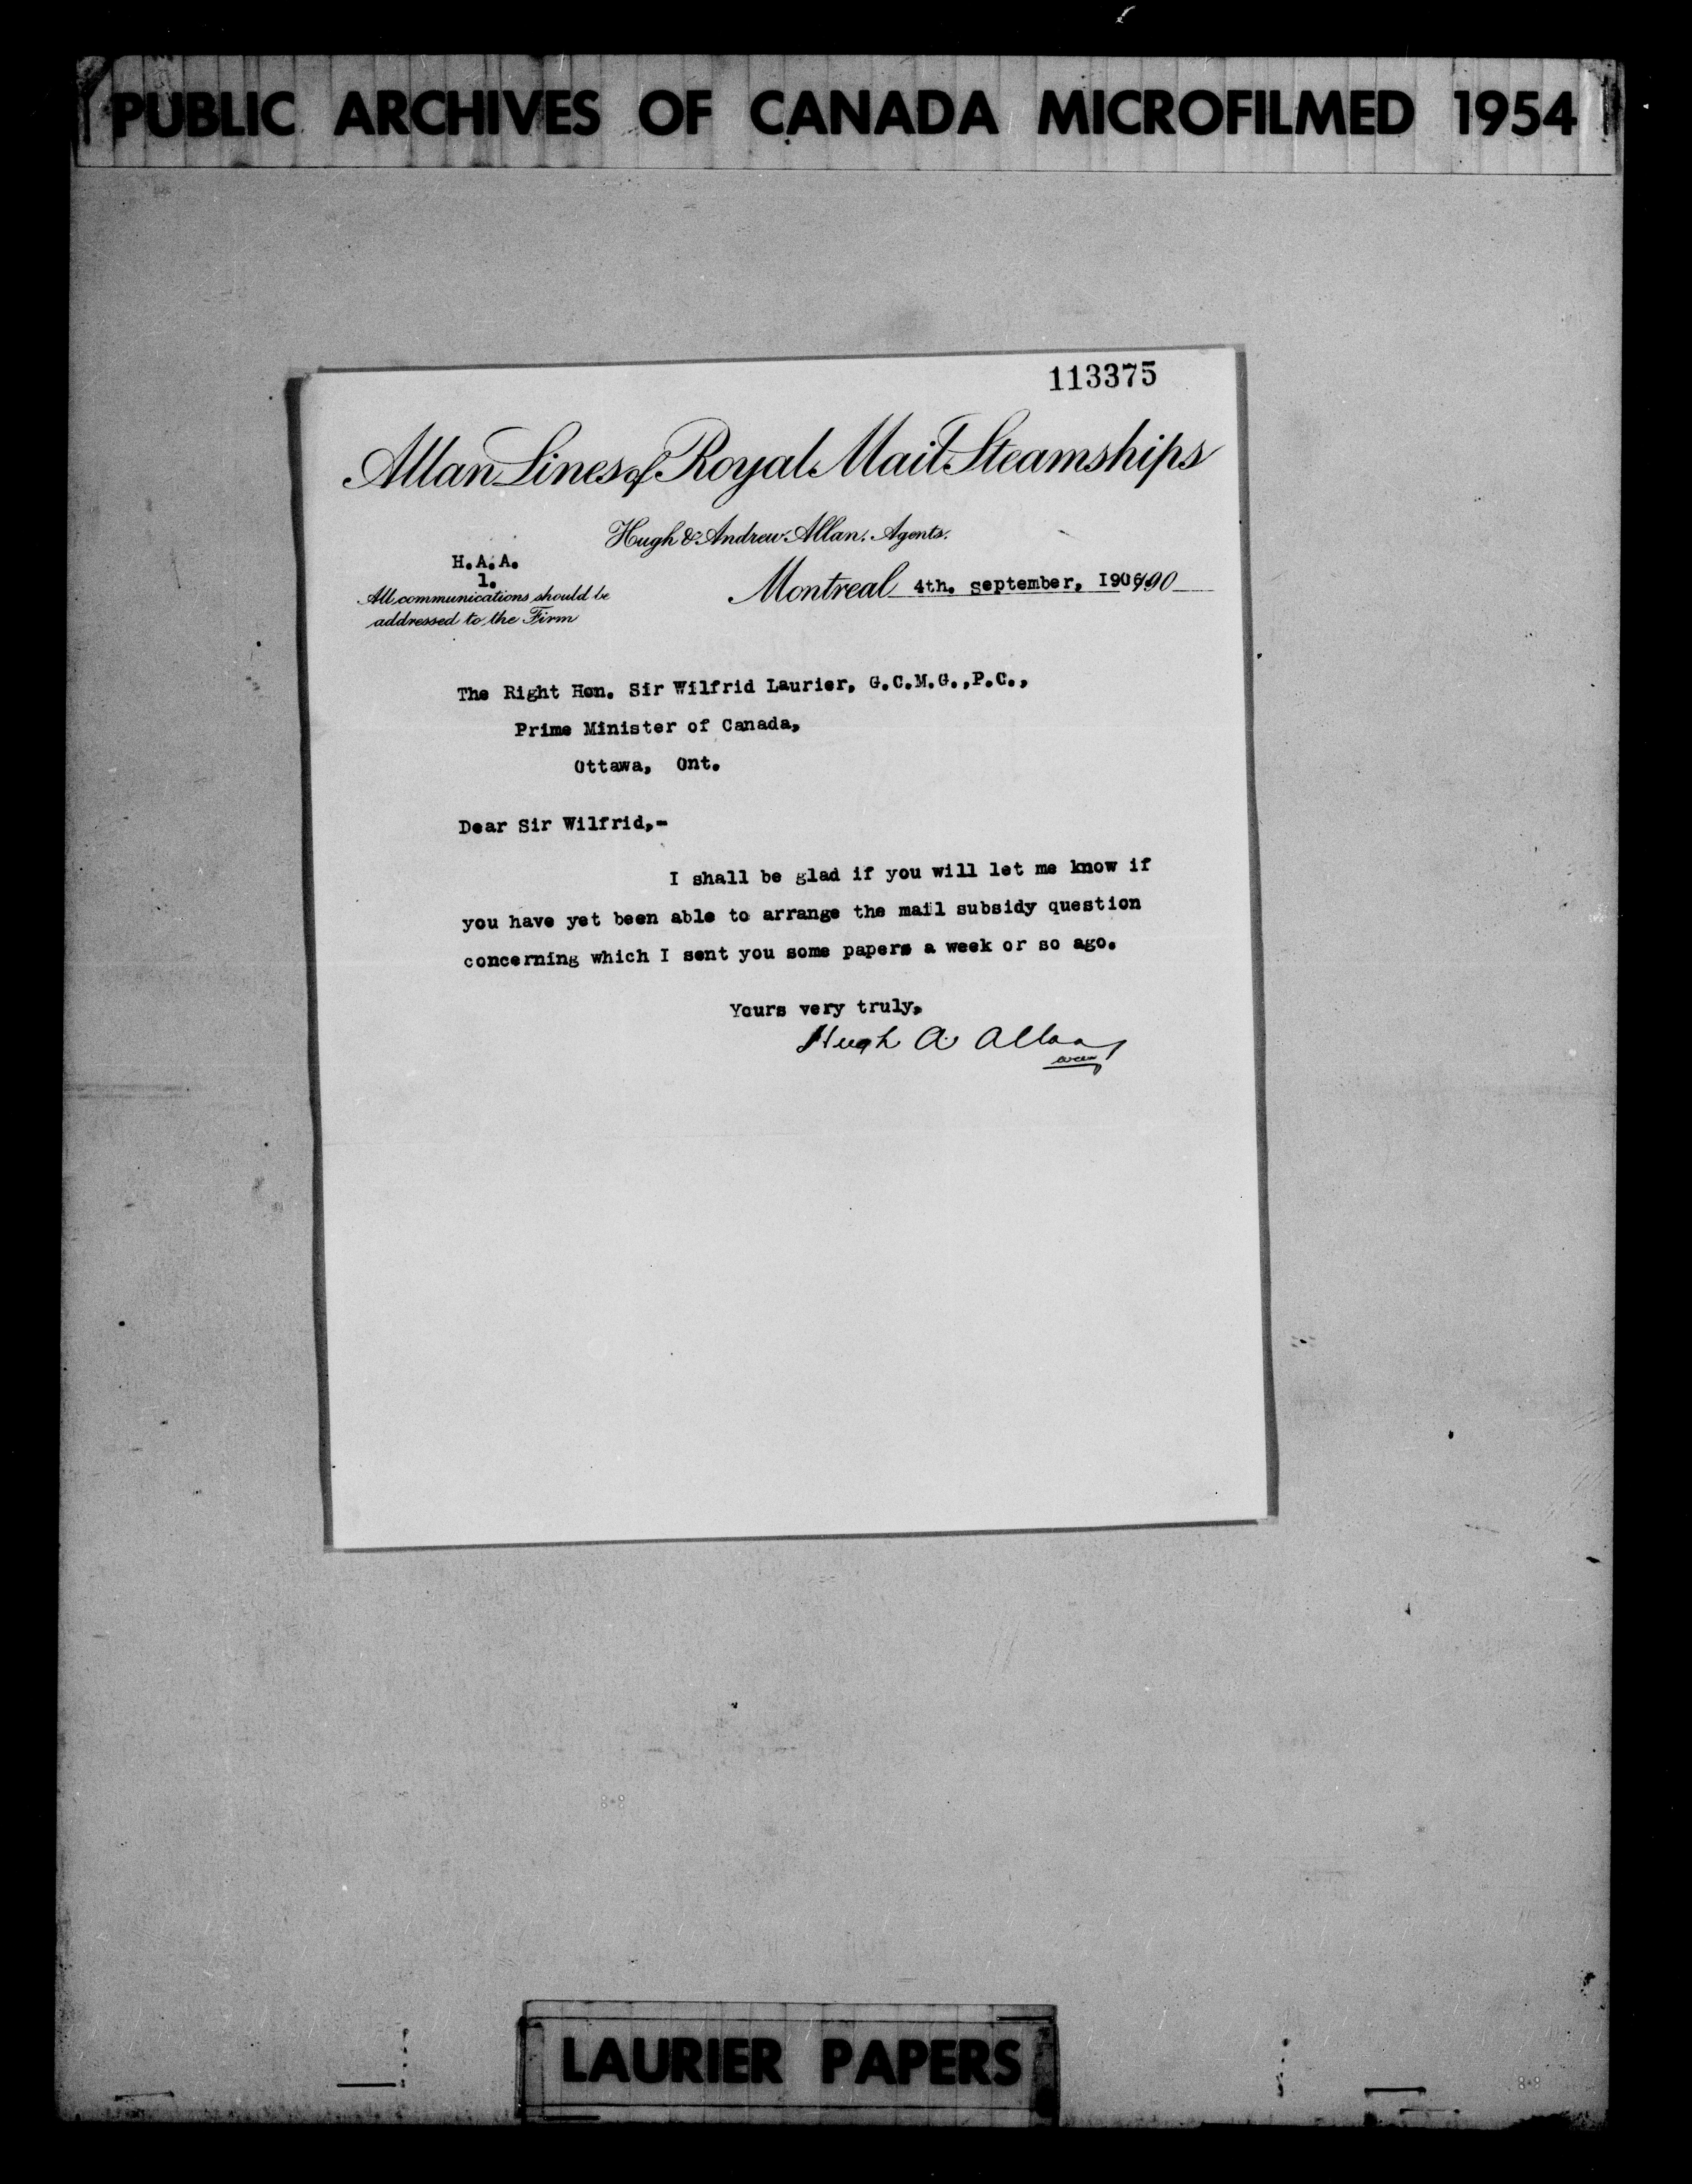 PUBLIC ARCHIVES OF CANADA MICROFILMED 1954
113375
Allan Lines of Royal Mail Steamships
Hugh & Andrew Allan. Agents.
H.A.A.
1.
All communications should be
addressed to the Firm
Montreal 4th. September, 190
The Right Hon. Sir Wilfrid Laurier, G.C.M.G.,P.C.,
Prime Minister of Canada,
Ottawa, Ont.
Dear Sir Wilfrid,-
I shall be glad if you will let me know if
you have yet been able to arrange the mail subsidy question
concerning which I sent you some papers a week or so ago.
Yours very truly,
Hugh A. Allan
LAURIER PAPERS